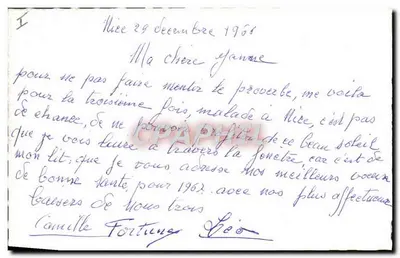 I
Nice 29 decembre 1961
Ma chère
pour ne pas faire mentir le proverbe, me voila
pour la troisième fois, malade à Nice, c'est pas
de chance, de ne profiter de ce beau soleil
que je vois luire à travers la fenêtre, car c'est de
mon lit, que je vous adresse nos meilleurs vœux
de bonne santé pour 1962 avec nos plus affectueux
baisers de nous trois
Camille Fortuné Léo